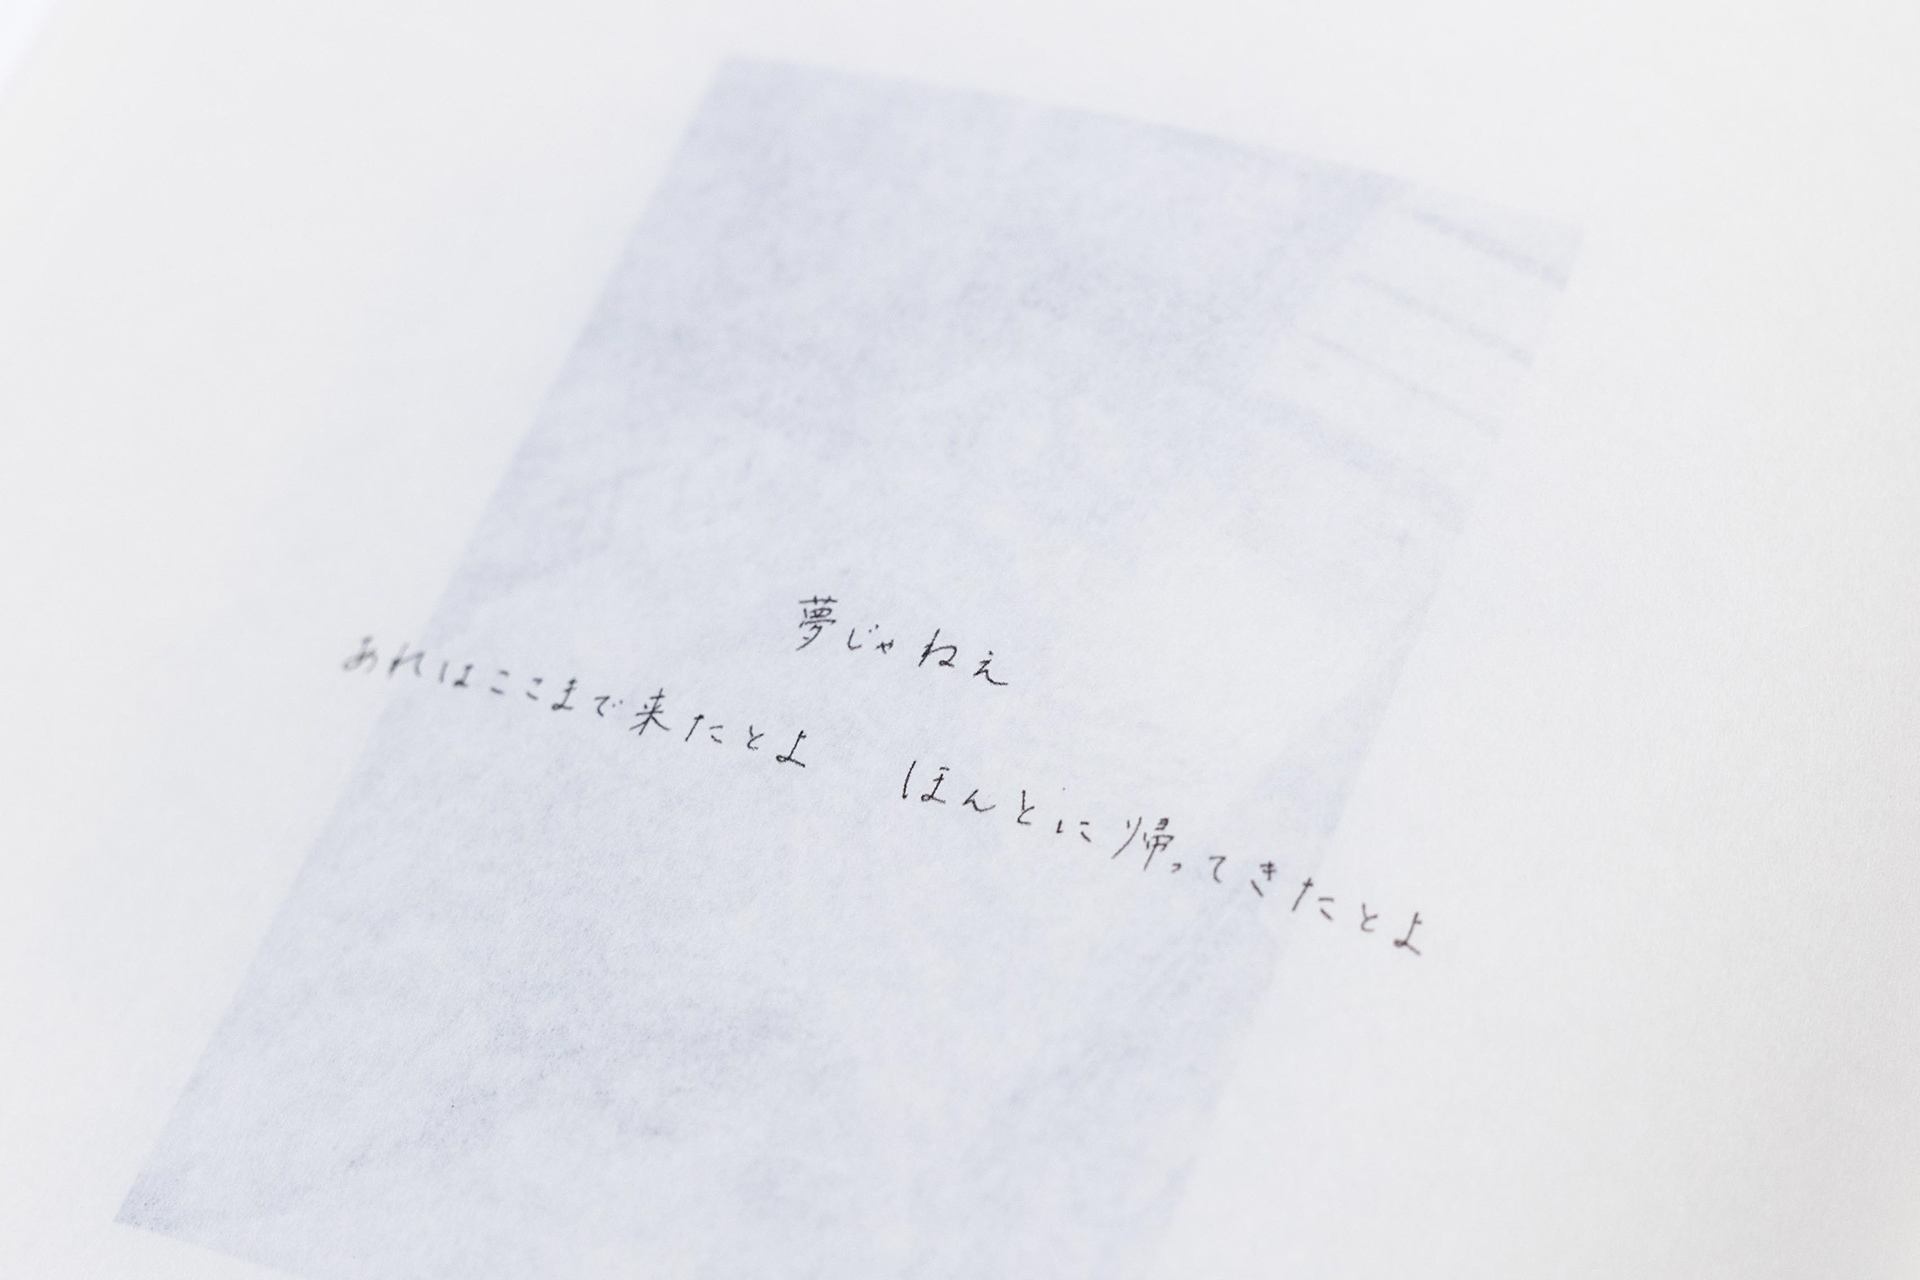 夢じゃねえ
あれはここまで来たとよ　ほんとに帰ってきたとよ